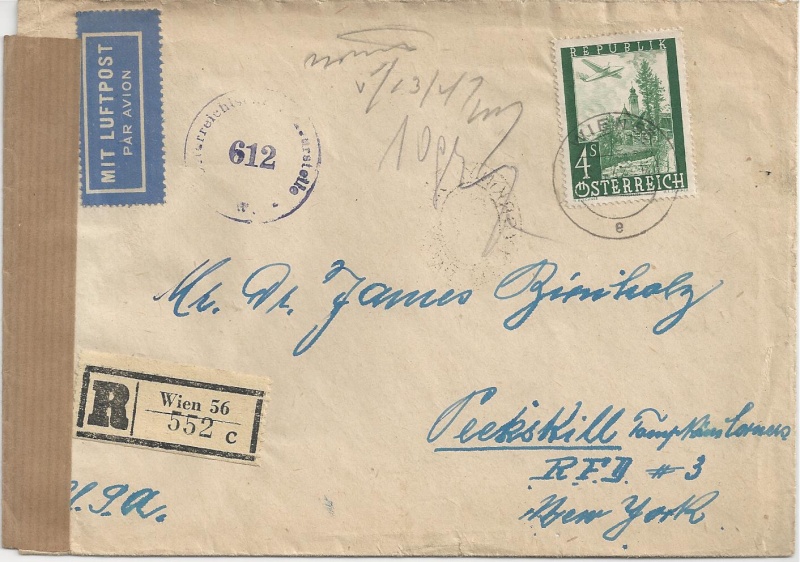 MIT LUFTPOST
PAR AVION
612
REPUBLIK
4 S
ÖSTERREICH
e
10 gr
Mr. Dr. James Bienholz
R
Wien 56
552 c
Peekskill
R.F.D # 3
New York
U.S.A.